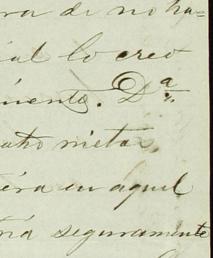 ra de no ha-
ial lo creo
mente. Dª
nieta
era en aquel
ría seguramente